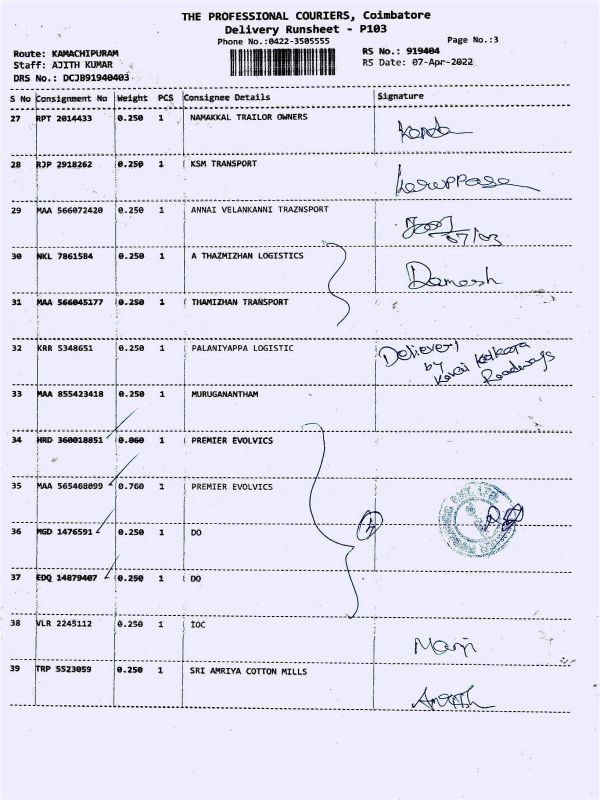 THE PROFESSIONAL COURIERS, Coimbatore
Delivery Runsheet - P103
Phone No.:0422-3505555
Page No.:3
Route: KAMACHIPURAM
RS No.: 919404
Staff: AJITH KUMAR
RS Date: 07-Apr-2022
DRS No.: DCJB91940403
S No Consignment No Weight PCS Consignee Details Signature
27 RPT 2014433 0.250 1 NAMAKKAL TRAILOR OWNERS
28 RJP 2918262 0.250 1 KSM TRANSPORT
29 MAA 566072420 0.250 1 ANNAI VELANKANNI TRAZNSPORT
07/03
30 NKL 7861584 0.250 1 A THAZMIZHAN LOGISTICS
Damesh
31 MAA 566045177 0.250 1 THAMIZHAN TRANSPORT
32 KRR 5348651 0.250 1 PALANIYAPPA LOGISTIC
by
Roadways
33 MAA 855423418 0.250 1 MURUGANANTHAM
34 HRD 360018851 0.060 1 PREMIER EVOLVICS
35 MAA 565468099 0.760 1 PREMIER EVOLVICS
36 MGD 1476591 0.250 1 DO
4
37 EDQ 14879407 0.250 1 DO
38 VLR 2245112 0.250 1 IOC
39 TRP 5523059 0.250 1 SRI AMRIYA COTTON MILLS